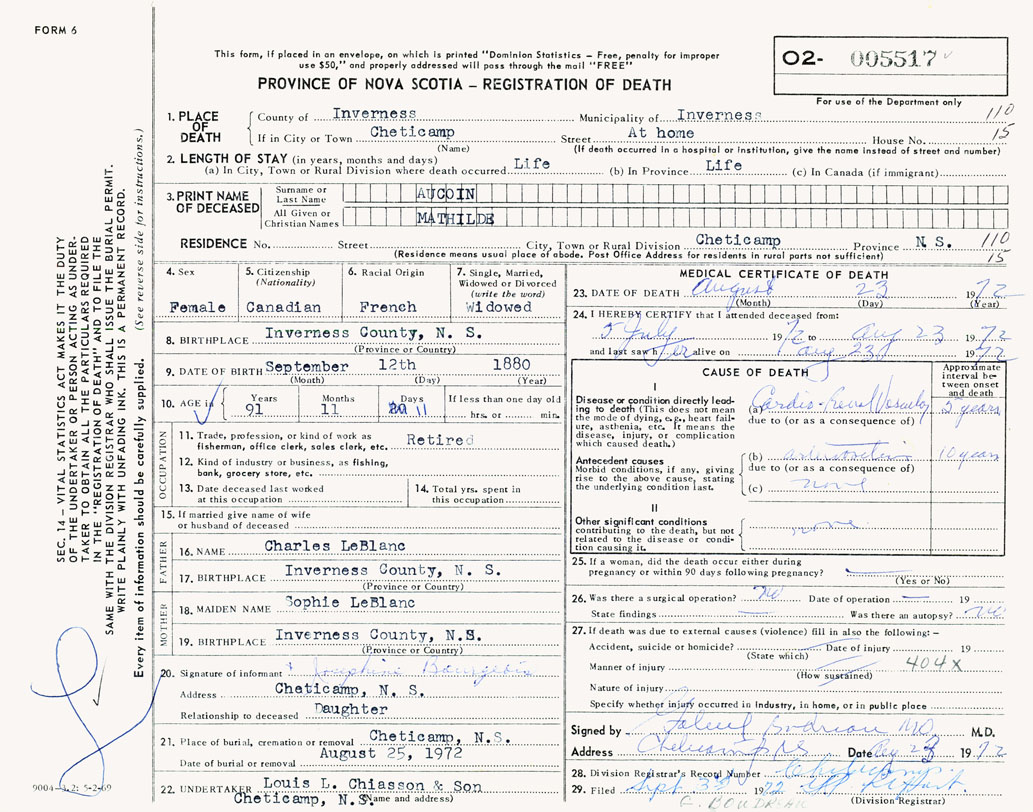 FORM 6
This form, if placed in an envelope, on which is printed "Dominion Statistics – Free, penalty for improper
use $50," and properly addressed will pass through the mail "FREE"
PROVINCE OF NOVA SCOTIA – REGISTRATION OF DEATH
O2- 005517
For use of the Department only
1. PLACE OF DEATH County of Inverness Municipality of Inverness 110
If in City or Town Cheticamp Street At home House No. 15
(Name) (If death occurred in a hospital or institution, give the name instead of street and number)
2. LENGTH OF STAY (in years, months and days)
(a) In City, Town or Rural Division where death occurred Life (b) In Province Life (c) In Canada (if immigrant)
3. PRINT NAME OF DECEASED
Surname or Last Name AUCOIN
All Given or Christian Names MATHILDE
RESIDENCE No. Street City, Town or Rural Division Cheticamp Province N. S. 110
(Residence means usual place of abode. Post Office Address for residents in rural parts not sufficient) 15
4. Sex
Female
5. Citizenship (Nationality)
Canadian
6. Racial Origin
French
7. Single, Married, Widowed or Divorced (write the word)
Widowed
8. BIRTHPLACE Inverness County, N. S.
(Province or Country)
9. DATE OF BIRTH September 12th 1880
(Month) (Day) (Year)
10. AGE in Years Months Days If less than one day old
91 11 11 hrs. or min.
OCCUPATION
11. Trade, profession, or kind of work as
fisherman, office clerk, sales clerk, etc. Retired
12. Kind of industry or business, as fishing,
bank, grocery store, etc.
13. Date deceased last worked
at this occupation
14. Total yrs. spent in
this occupation
15. If married give name of wife
or husband of deceased
FATHER
16. NAME Charles LeBlanc
17. BIRTHPLACE Inverness County, N. S.
(Province or Country)
MOTHER
18. MAIDEN NAME Sophie LeBlanc
19. BIRTHPLACE Inverness County, N.S.
(Province or Country)
20. Signature of informant Josephine Bourgeois
Address Cheticamp, N. S.
Relationship to deceased Daughter
21. Place of burial, cremation or removal Cheticamp, N.S.
Date of burial or removal August 25, 1972
22. UNDERTAKER Louis L. Chiasson & Son
Cheticamp, N.S. (Name and address)
MEDICAL CERTIFICATE OF DEATH
23. DATE OF DEATH August 23 1972
(Month) (Day) (Year)
24. I HEREBY CERTIFY that I attended deceased from:
5 July 1972 to Aug 23 1972
and last saw her alive on Aug 23 1972
CAUSE OF DEATH
Approximate interval between onset and death
I
Disease or condition directly lead-
ing to death (This does not mean
the mode of dying, e.g., heart fail-
ure, asthenia, etc. It means the
disease, injury, or complication
which caused death.)
(a) Cardio-Renal Vascular 5 years
due to (or as a consequence of)
Antecedent causes
Morbid conditions, if any, giving
rise to the above cause, stating
the underlying condition last.
(b) 10 years
due to (or as a consequence of)
(c) none
II
Other significant conditions
contributing to the death, but not
related to the disease or condi-
tion causing it.
none
25. If a woman, did the death occur either during
pregnancy or within 90 days following pregnancy?
(Yes or No)
26. Was there a surgical operation? No Date of operation 19
State findings Was there an autopsy? No
27. If death was due to external causes (violence) fill in also the following: –
Accident, suicide or homicide? Date of injury 19
(State which) 404X
Manner of injury
(How sustained)
Nature of injury
Specify whether injury occurred in industry, in home, or in public place
Signed by M.D.
Address Date Aug 23 1972
28. Division Registrar's Record Number
29. Filed Sept. 1972
(Division Registrar)
E. BOUDREAU
SEC. 14 – VITAL STATISTICS ACT MAKES IT THE DUTY
OF THE UNDERTAKER OR PERSON ACTING AS UNDER-
TAKER TO OBTAIN ALL THE PARTICULARS REQUIRED
IN THE "REGISTRATION OF DEATH" AND TO FILE THE
SAME WITH THE DIVISION REGISTRAR WHO SHALL ISSUE THE BURIAL PERMIT.
WRITE PLAINLY WITH UNFADING INK, THIS IS A PERMANENT RECORD.
Every item of information should be carefully supplied. (See reverse side for instructions.)